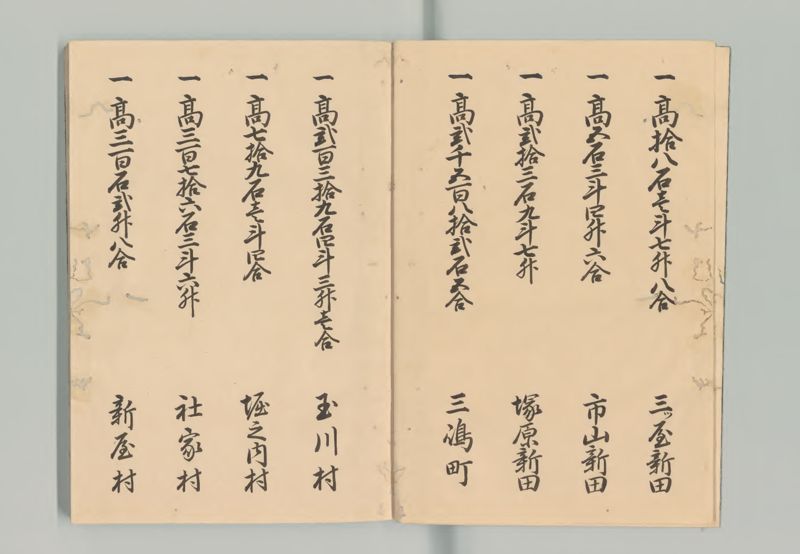 一高拾八石壱斗七升八合 三ッ屋新田
一高五石三斗四升六合 市山新田
一高弐拾三石九斗七升 塚原新田
一高弐千五百八拾弐石五合 三嶋町
一高弐百三拾九石四斗三升壱合 玉川村
一高七拾九石壱斗四合 堀之内村
一高三百七拾六石三斗六升 社家村
一高三百石弐升八合 新屋村